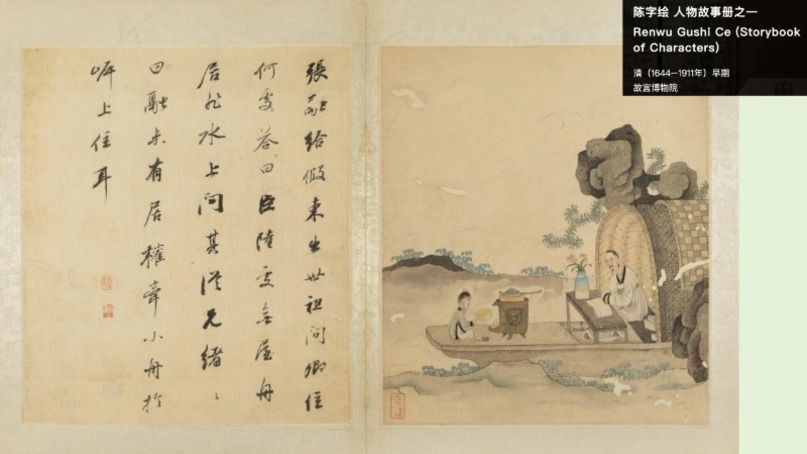 陈字绘 人物故事册之一
Renwu Gushi Ce (Storybook
of Characters)
清（1644—1911年）早期
故宫博物院
張融給假東出世祖問卿住
何處答曰臣陸處無屋舟
居非水上問其從兄緒〻
曰融未有居權牽小舟於
岸上住耳